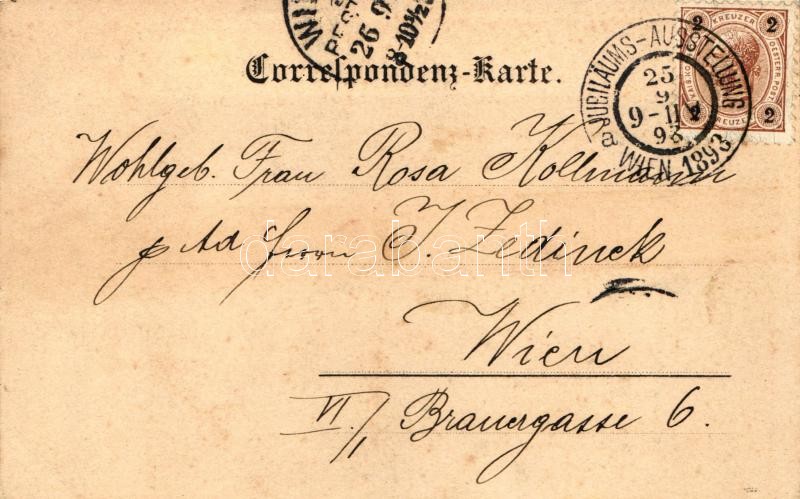 WI
BEST
26 9
8-10½
2 KREUZER 2
Correspondenz-Karte.
JUBILÄUMS-AUSSTELLUNG
25
9
9-11
93
a WIEN 1893
2 KREUZER 2
Wohlgeb. Frau Rosa Kollmann
p Ad Herrn J. Zedinek
darabanth
Wien
VI/1 Brauergasse 6.